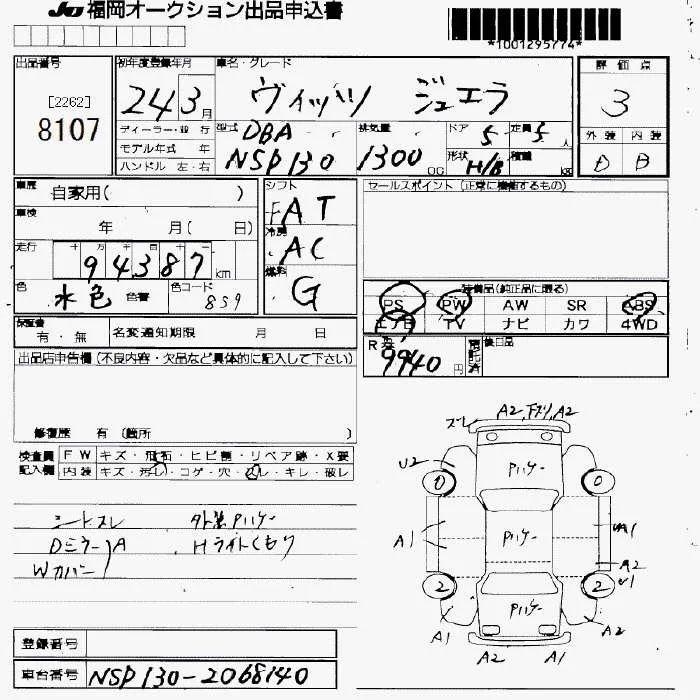 JU 福岡オークション出品申込書
*1001295774*
出品番号
[2262]
8107
初年度登録年月
24 3月
車名・グレード
ヴィッツ ジュエラ
評価点
3
外装 内装
D B
ディーラー・並行
モデル年式 年
ハンドル 左・右
型式
DBA
NSP130
排気量
1300 CC
ドア 5
定員 5人
形状 H/B
積載 KG
車歴
自家用( )
車検
年 月( 日)
走行
十 万 千 百 十
94387 km
色
水色 色替
色コード
859
シフト
FAT
冷房
AC
燃料
G
セールスポイント(正常に機能するもの)
装備品(純正品に限る)
PS PW AW SR ABS
エアB TV ナビ カワ 4WD
保証書
有・無
名変通知期限 月 日
9940 円
後日品
出品店申告欄(不良内容・欠品など具体的に記入して下さい)
修復歴 有 (箇所 )
検査員
記入欄
FW キズ・飛石・ヒビ割・リペア跡・X要
内装 キズ・汚レ・コゲ・穴・スレ・キレ・破レ
シートスレ 外装Pハゲー
Dミラー A Hライトくもり
Wカバー
ズレ A2 下ズリ A2
U2
Pハゲー
0 0
A1
Pハゲー
A1
A2
2 2
Pハゲー
A1
A2
A2 A1
登録番号
車台番号 NSP130-2068140